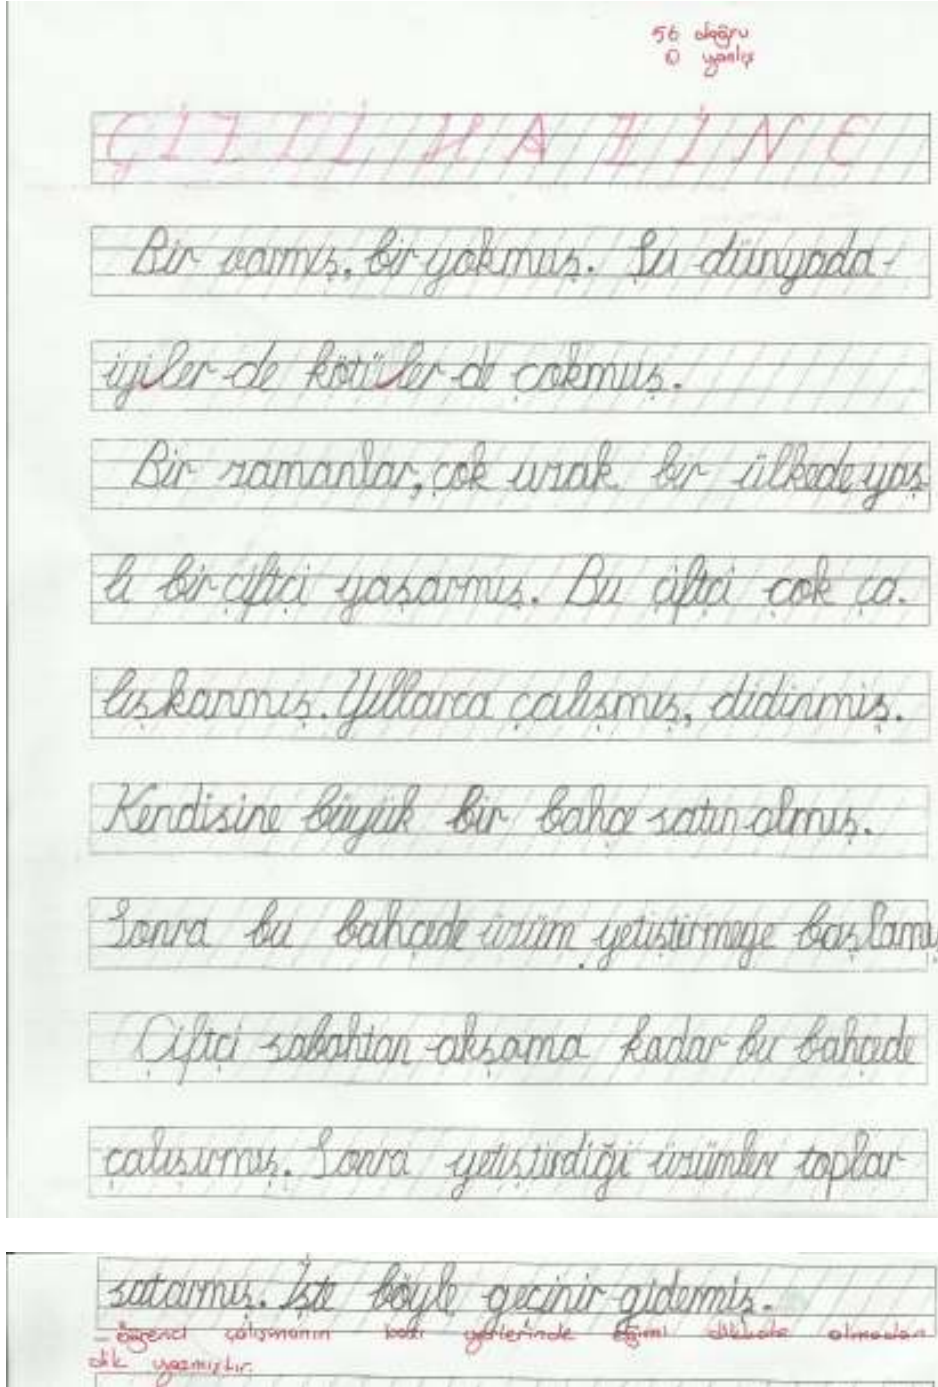 56 doğru
0 yanlış
GİZLİ HAZİNE
Bir varmış, bir yokmuş. Şu dünyada
iyiler de kötüler de çokmuş.
Bir zamanlar, çok uzak bir ülkede yaş
lı bir çiftçi yaşarmış. Bu çiftçi çok ça.
lışkanmış. Yıllarca çalışmış, didinmiş.
Kendisine büyük bir bahçe satın almış.
Sonra bu bahçede üzüm yetiştirmeye başlamış
Çiftçi sabahtan akşama kadar bu bahçede
çalışırmış. Sonra yetiştirdiği üzümleri toplar
satarmış. İşte böyle geçinir gidermiş.
- Öğrenci çalışmanın bazı yerlerinde eğimi dikkate almadan
dik yazmıştır.